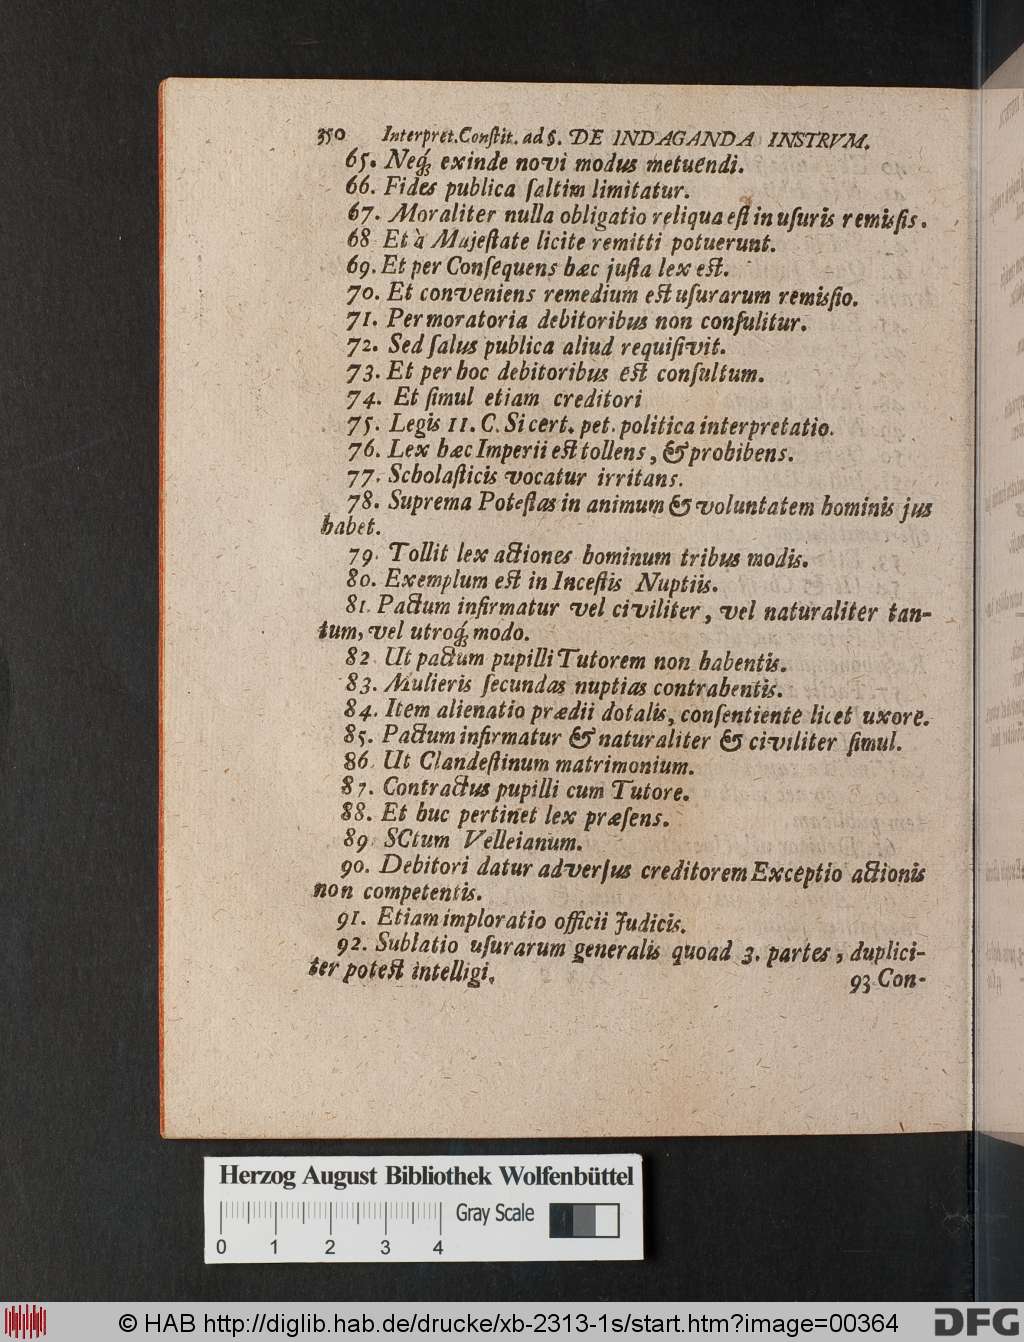 350 Interpret. Constit. ad §. DE INDAGANDA INSTRVM.
65. Neq́; exinde novi modus metuendi.
66. Fides publica ſaltim limitatur.
67. Moraliter nulla obligatio reliqua eſt in uſuris remiſsis.
68 Et à Majeſtate licite remitti potuerunt.
69. Et per Conſequens hæc juſta lex eſt.
70. Et conveniens remedium eſt uſurarum remiſsio.
71. Per moratoria debitoribus non conſulitur.
72. Sed ſalus publica aliud requiſivit.
73. Et per hoc debitoribus eſt conſultum.
74. Et ſimul etiam creditori
75. Legis 11. C. Si cert. pet. politica interpretatio.
76. Lex hæc Imperii eſt tollens, & prohibens.
77. Scholaſticis vocatur irritans.
78. Suprema Poteſtas in animum & voluntatem hominis jus
habet.
79. Tollit lex actiones hominum tribus modis.
80. Exemplum eſt in Inceſtis Nuptiis.
81. Pactum infirmatur vel civiliter, vel naturaliter tan-
tum, vel utroq́; modo.
82. Ut pactum pupilli Tutorem non habentis.
83. Mulieris ſecundas nuptias contrahentis.
84. Item alienatio prædii dotalis, conſentiente licet uxore.
85. Pactum infirmatur & naturaliter & civiliter ſimul.
86. Ut Clandeſtinum matrimonium.
87. Contractus pupilli cum Tutore.
88. Et huc pertinet lex præſens.
89. SCtum Velleianum.
90. Debitori datur adverſus creditorem Exceptio actionis
non competentis.
91. Etiam imploratio officii Judicis.
92. Sublatio uſurarum generalis quoad 3. partes, duplici-
ter poteſt intelligi.
93 Con-
Herzog August Bibliothek Wolfenbüttel
Gray Scale
0 1 2 3 4
© HAB http://diglib.hab.de/drucke/xb-2313-1s/start.htm?image=00364
DFG